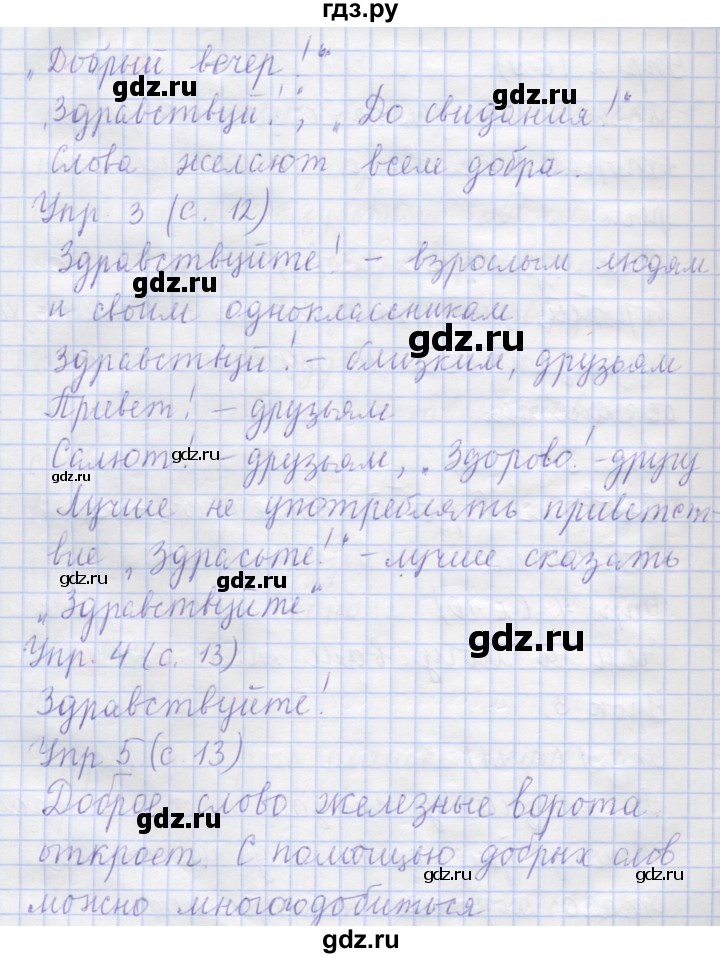 гдз.ру
„Добрый вечер!“
gdz.ru gdz.ru
„Здравствуй!“, „До свидания!“
Слова желают всем добра.
Упр. 3 (с. 12)
Здравствуйте! – взрослым людям
gdz.ru
и своим одноклассникам
gdz.ru
Здравствуй! – близким, друзьям
Привет! – друзьям
Салют! – друзьям, „Здорово! – другу
gdz.ru gdz.ru gdz.ru
Лучше не употреблять приветст-
вие „Здрасьте!“ – лучше сказать
gdz.ru gdz.ru
„Здравствуйте“
Упр. 4 (с. 13)
gdz.ru
Здравствуйте!
Упр 5 (с. 13)
Доброе слово железные ворота
gdz.ru
откроет. С помощью добрых слов
gdz.ru gdz.ru
можно многого добиться
gdz.ru